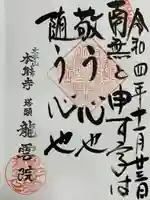 令和四年十一月廿三日
南無と申す字は
敬う心也
随う心也
本能寺
塔頭
龍雲院